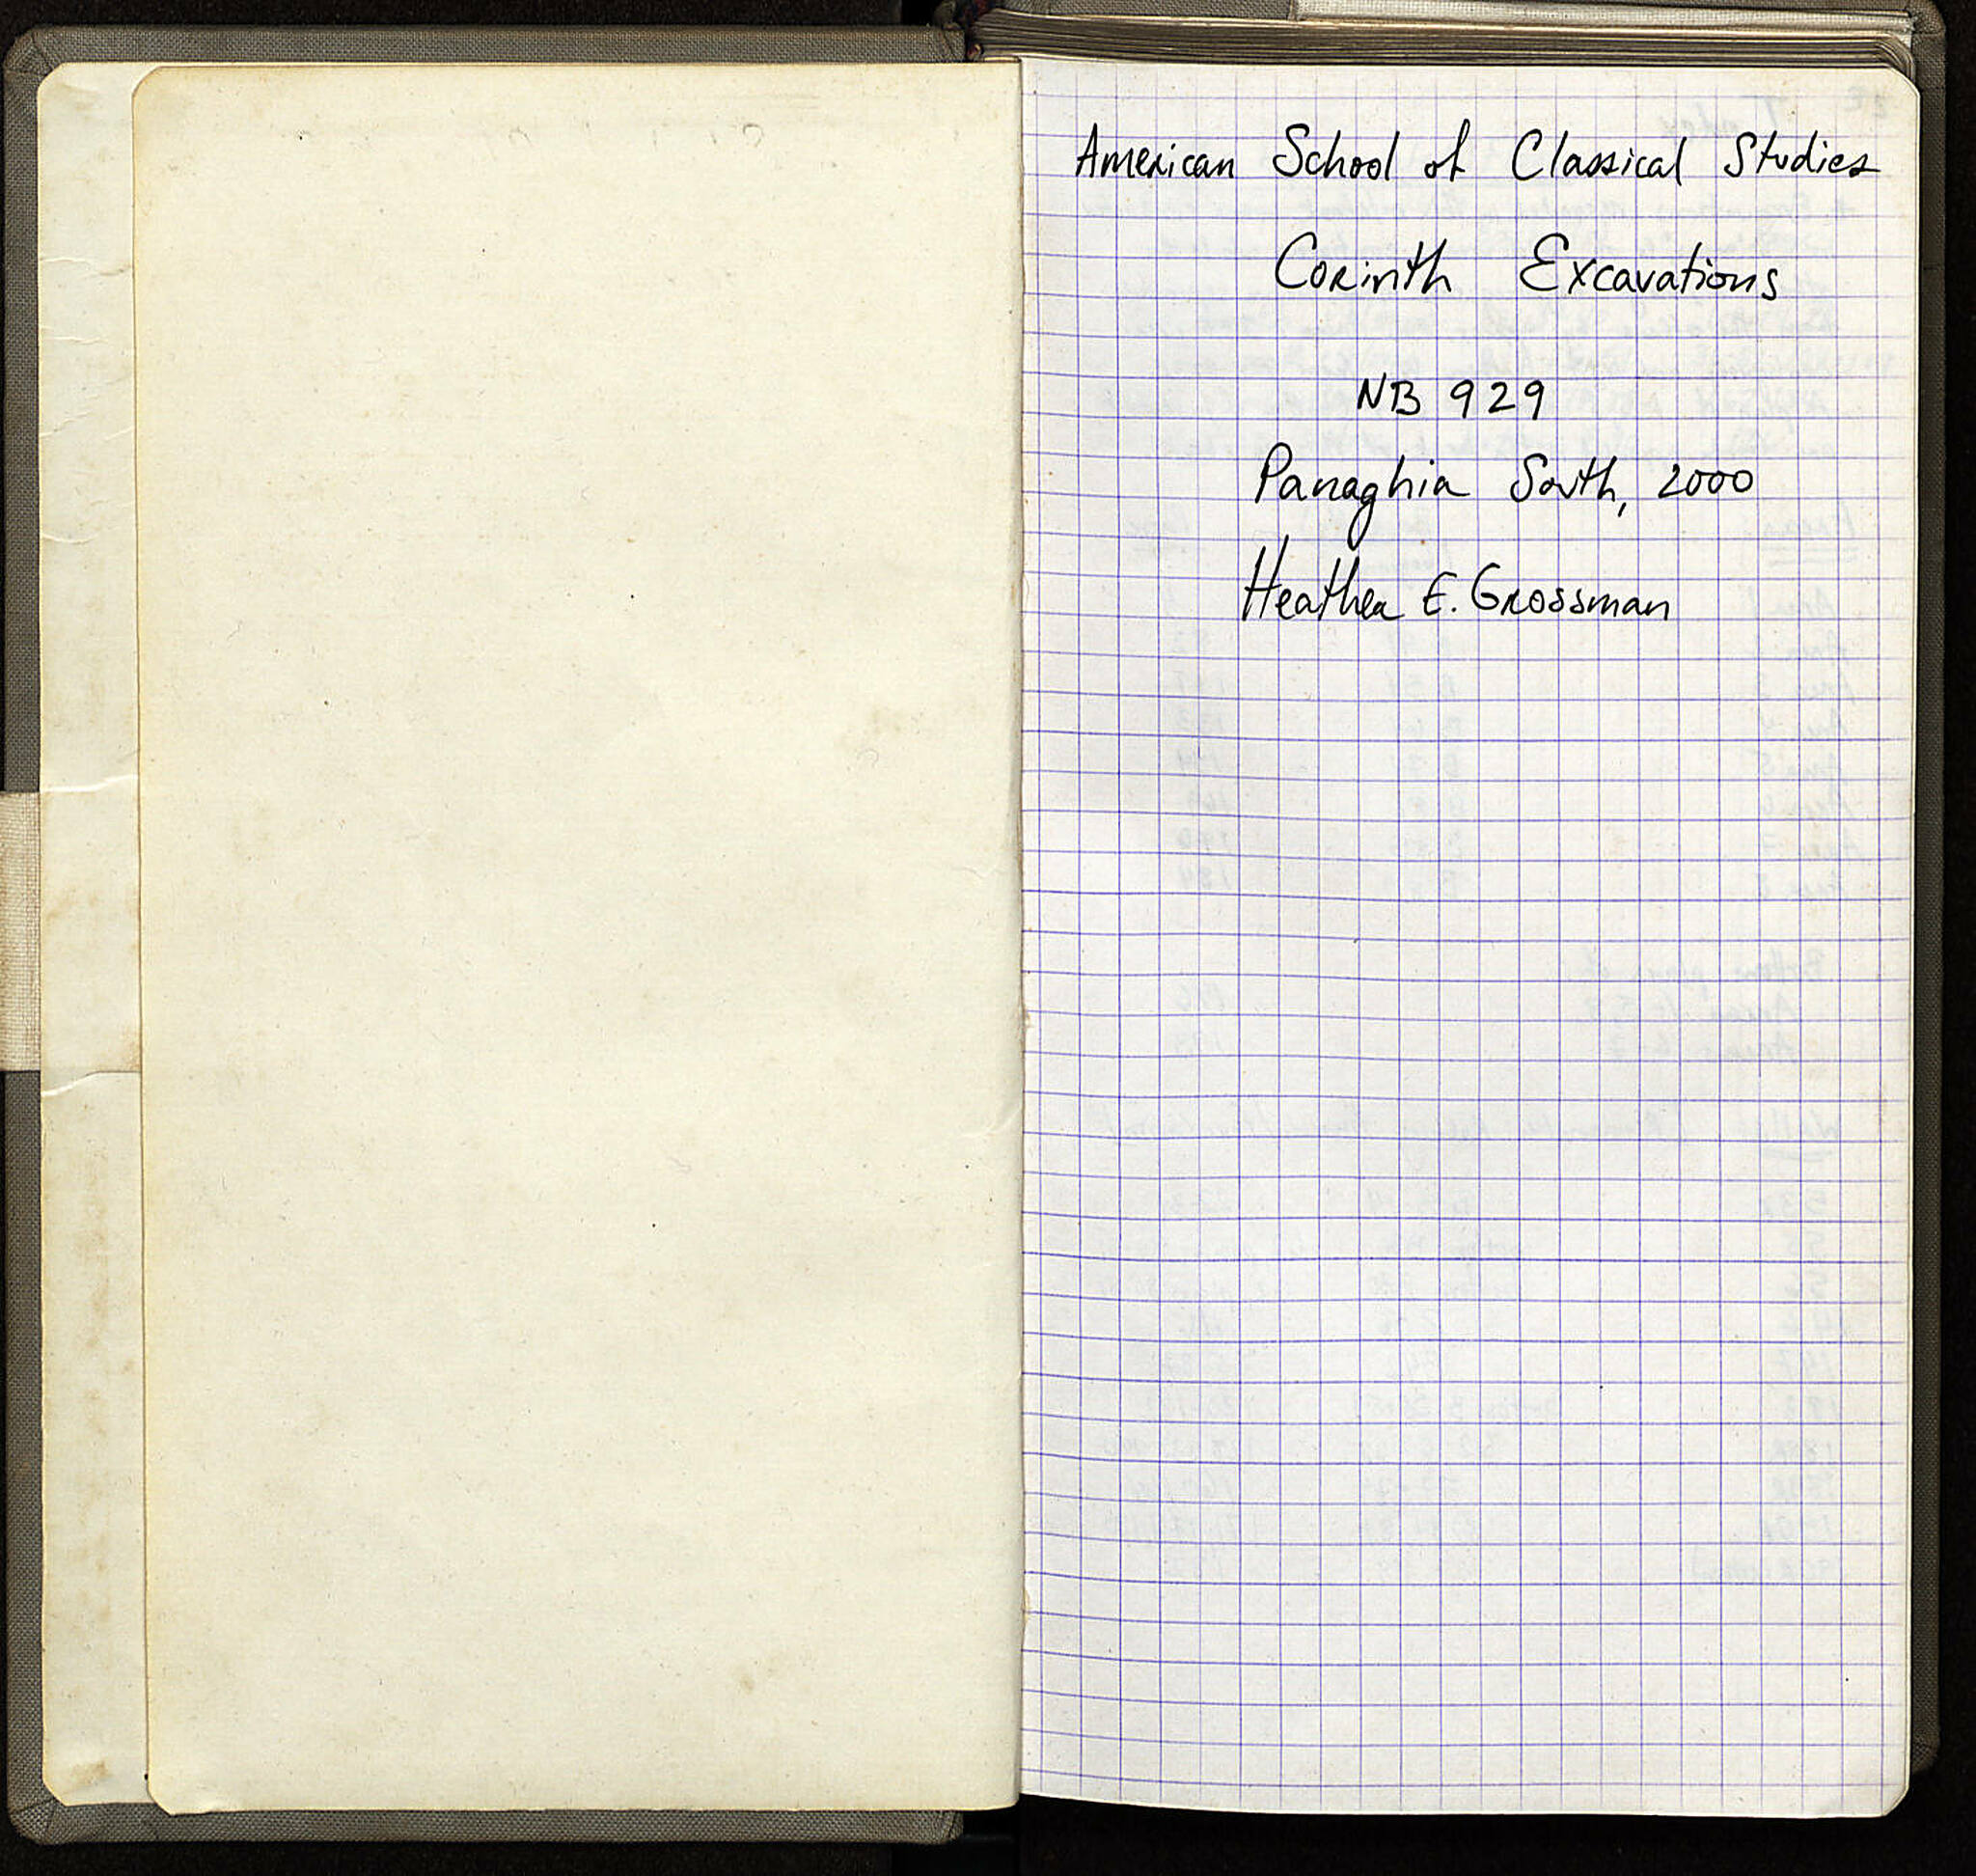 American School of Classical Studies
Corinth Excavations
NB 929
Panaghia South, 2000
Heather E. Grossman